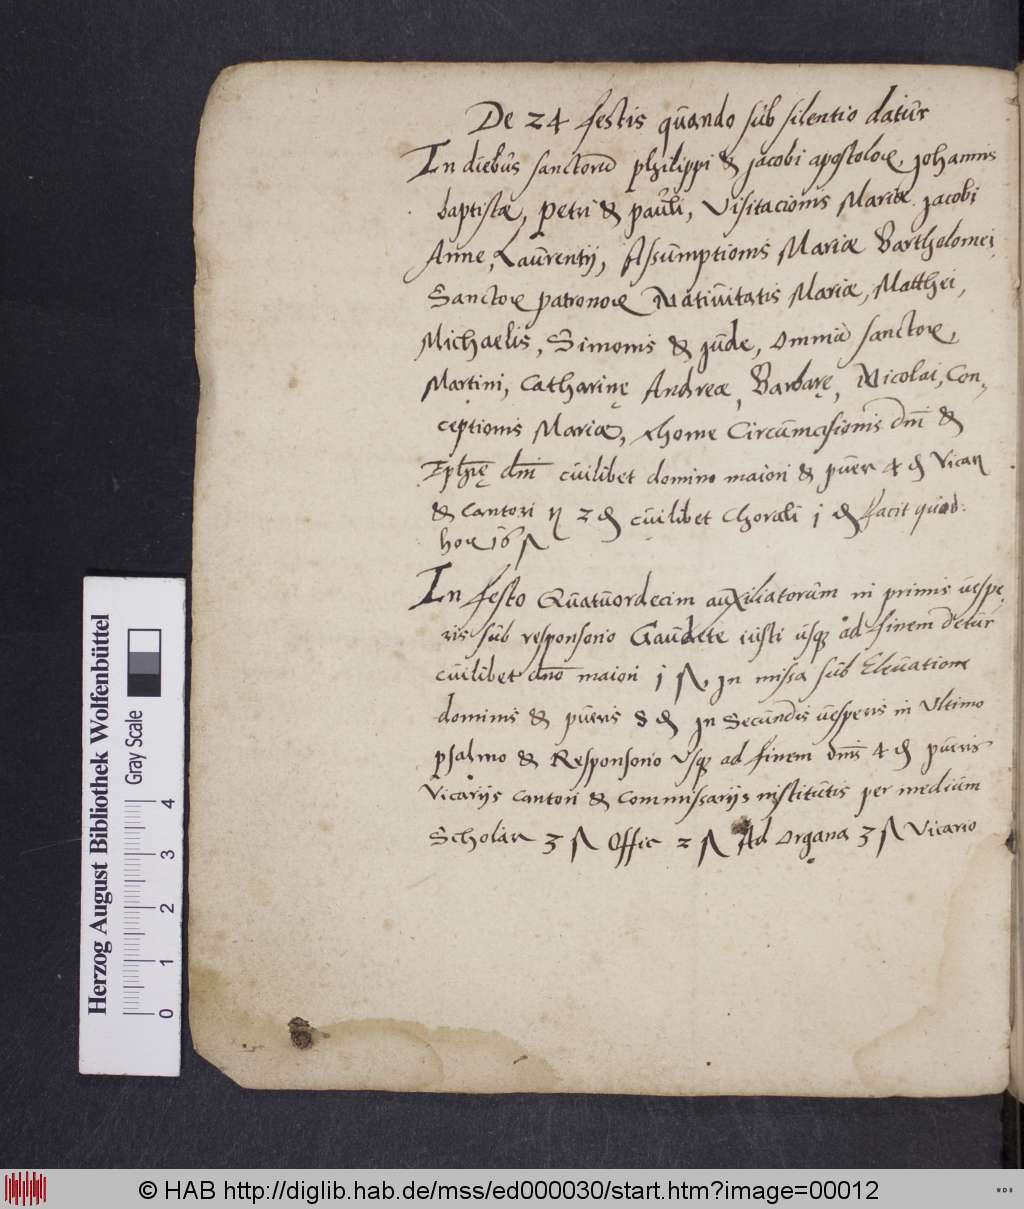 De 24 festis quando sub silentio datur
In diebus sanctorũ philippi & Jacobi apostolorꝫ, Johannis
baptistæ, Petri & pauli, Visitacionis Mariæ. Jacobi
Anne, Laurentij, Assumptionis Mariæ Bartholomei,
Sanctorꝫ patronorꝫ Nativitatis Mariæ, Matthei,
Michaelis, Simonis & Jude, omniũ sanctorꝫ,
Martini, Catharinę Andreæ, Barbarę, Nicolai, Con,
ceptionis Mariæ, thome Circumcisionis dnĩ &
dnĩ cuilibet domino maiori & puer 4 ₰ Vicar
& Cantori 2 ₰ cuilibet Chorali j ₰ facit quād.
hore 16
In festo Quatuordecim auxiliatorum in primis uespe,
ris sub responsorio Gaudete iusti usqꝫ ad finem detur
cuilibet dno maiori j ß, In missa sub Eleuatione
dominis & pueris 8 ₰ In Secundis uesperis in Ultimo
psalmo & Responsorio Usqꝫ ad finem dnis 4 ₰ pueris
Vicarijs Cantori & Commissarijs institutis per medium
Scholar 3 ß Offic 2 ß Ad Organa 3 ß Vicario
Herzog August Bibliothek Wolfenbüttel
Gray Scale
0 1 2 3 4
© HAB http://diglib.hab.de/mss/ed000030/start.htm?image=00012